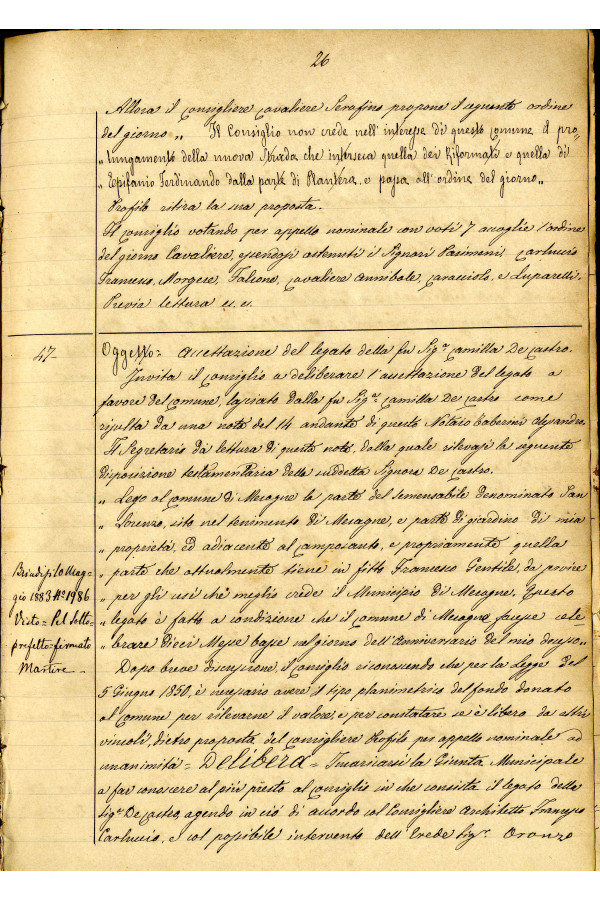 26
Allora il consigliere Cavaliere Serafino propone il seguente ordine
del giorno „ Il Consiglio non crede nell'interesse di questo Comune il pro=
„ lungamento della nuova strada che interseca quella dei Riformati e quella di
„ Epifanio Ferdinando dalla parte di Plantera, e passa all'ordine del giorno„
Profilo ritira la sua proposta.
Il Consiglio votando per appello nominale con voti 7 accoglie l'ordine
del giorno Cavaliere, essendosi astenuti i Signori Pasimini, Carluccio
Francesco, Morgese, Falcone, Cavaliere Annibale, Caracciolo, e Luparelli.
Previa lettura e.c.
47-
Oggetto= Accettazione del legato della fu Sig.ª Camilla De Castro.
Invita il Consiglio a deliberare l'accettazione del legato a
favore del Comune, lasciato dalla fu Sig.ª Camilla De Castro come
risulta da una nota del 14 andante di questo Notaio Caberini Alessandro.
Il Segretario dà lettura di questa nota, dalla quale rilevasi la seguente
disposizione testamentaria della suddetta Signora De Castro.
„ Lego al Comune di Mesagne la parte del semensabile denominato San
„ Lorenzo, sito nel tenimento di Mesagne, e parte di giardino di mia
„ proprietà, ed adiacente al camposanto, e propriamente quella
„ parte che attualmente tiene in fitto Francesco Gentile, da servire
„ per gli usi che meglio crede il Municipio di Mesagne. Questo
„ legato è fatto a condizione che il Comune di Mesagne facesse cele-
„ brare dieci Messe basse nel giorno dell'Anniversario del mio decesso„
Brindisi 10 Mag-
gio 1883 N° 1986
Visto= Pel Sotto-
prefetto= firmato
Martire -
Dopo breve discussione, il Consiglio riconoscendo che per la Legge del
5 Giugno 1850, è necessario avere il tipo planimetrico del fondo donato
al Comune per rilevarne il valore, e per constatare se è libero da altri
vincoli, dietro proposta del Consigliere Profilo per appello nominale ad
unanimità= Delibera= Incaricarsi la Giunta Municipale
a far conoscere al più presto al Consiglio in che consista il legato della
Sig.ª De Castro, agendo in ciò di accordo col Consigliere Architetto Francesco
Carluccio, e col possibile intervento dell'Erede Sig.r Oronzo